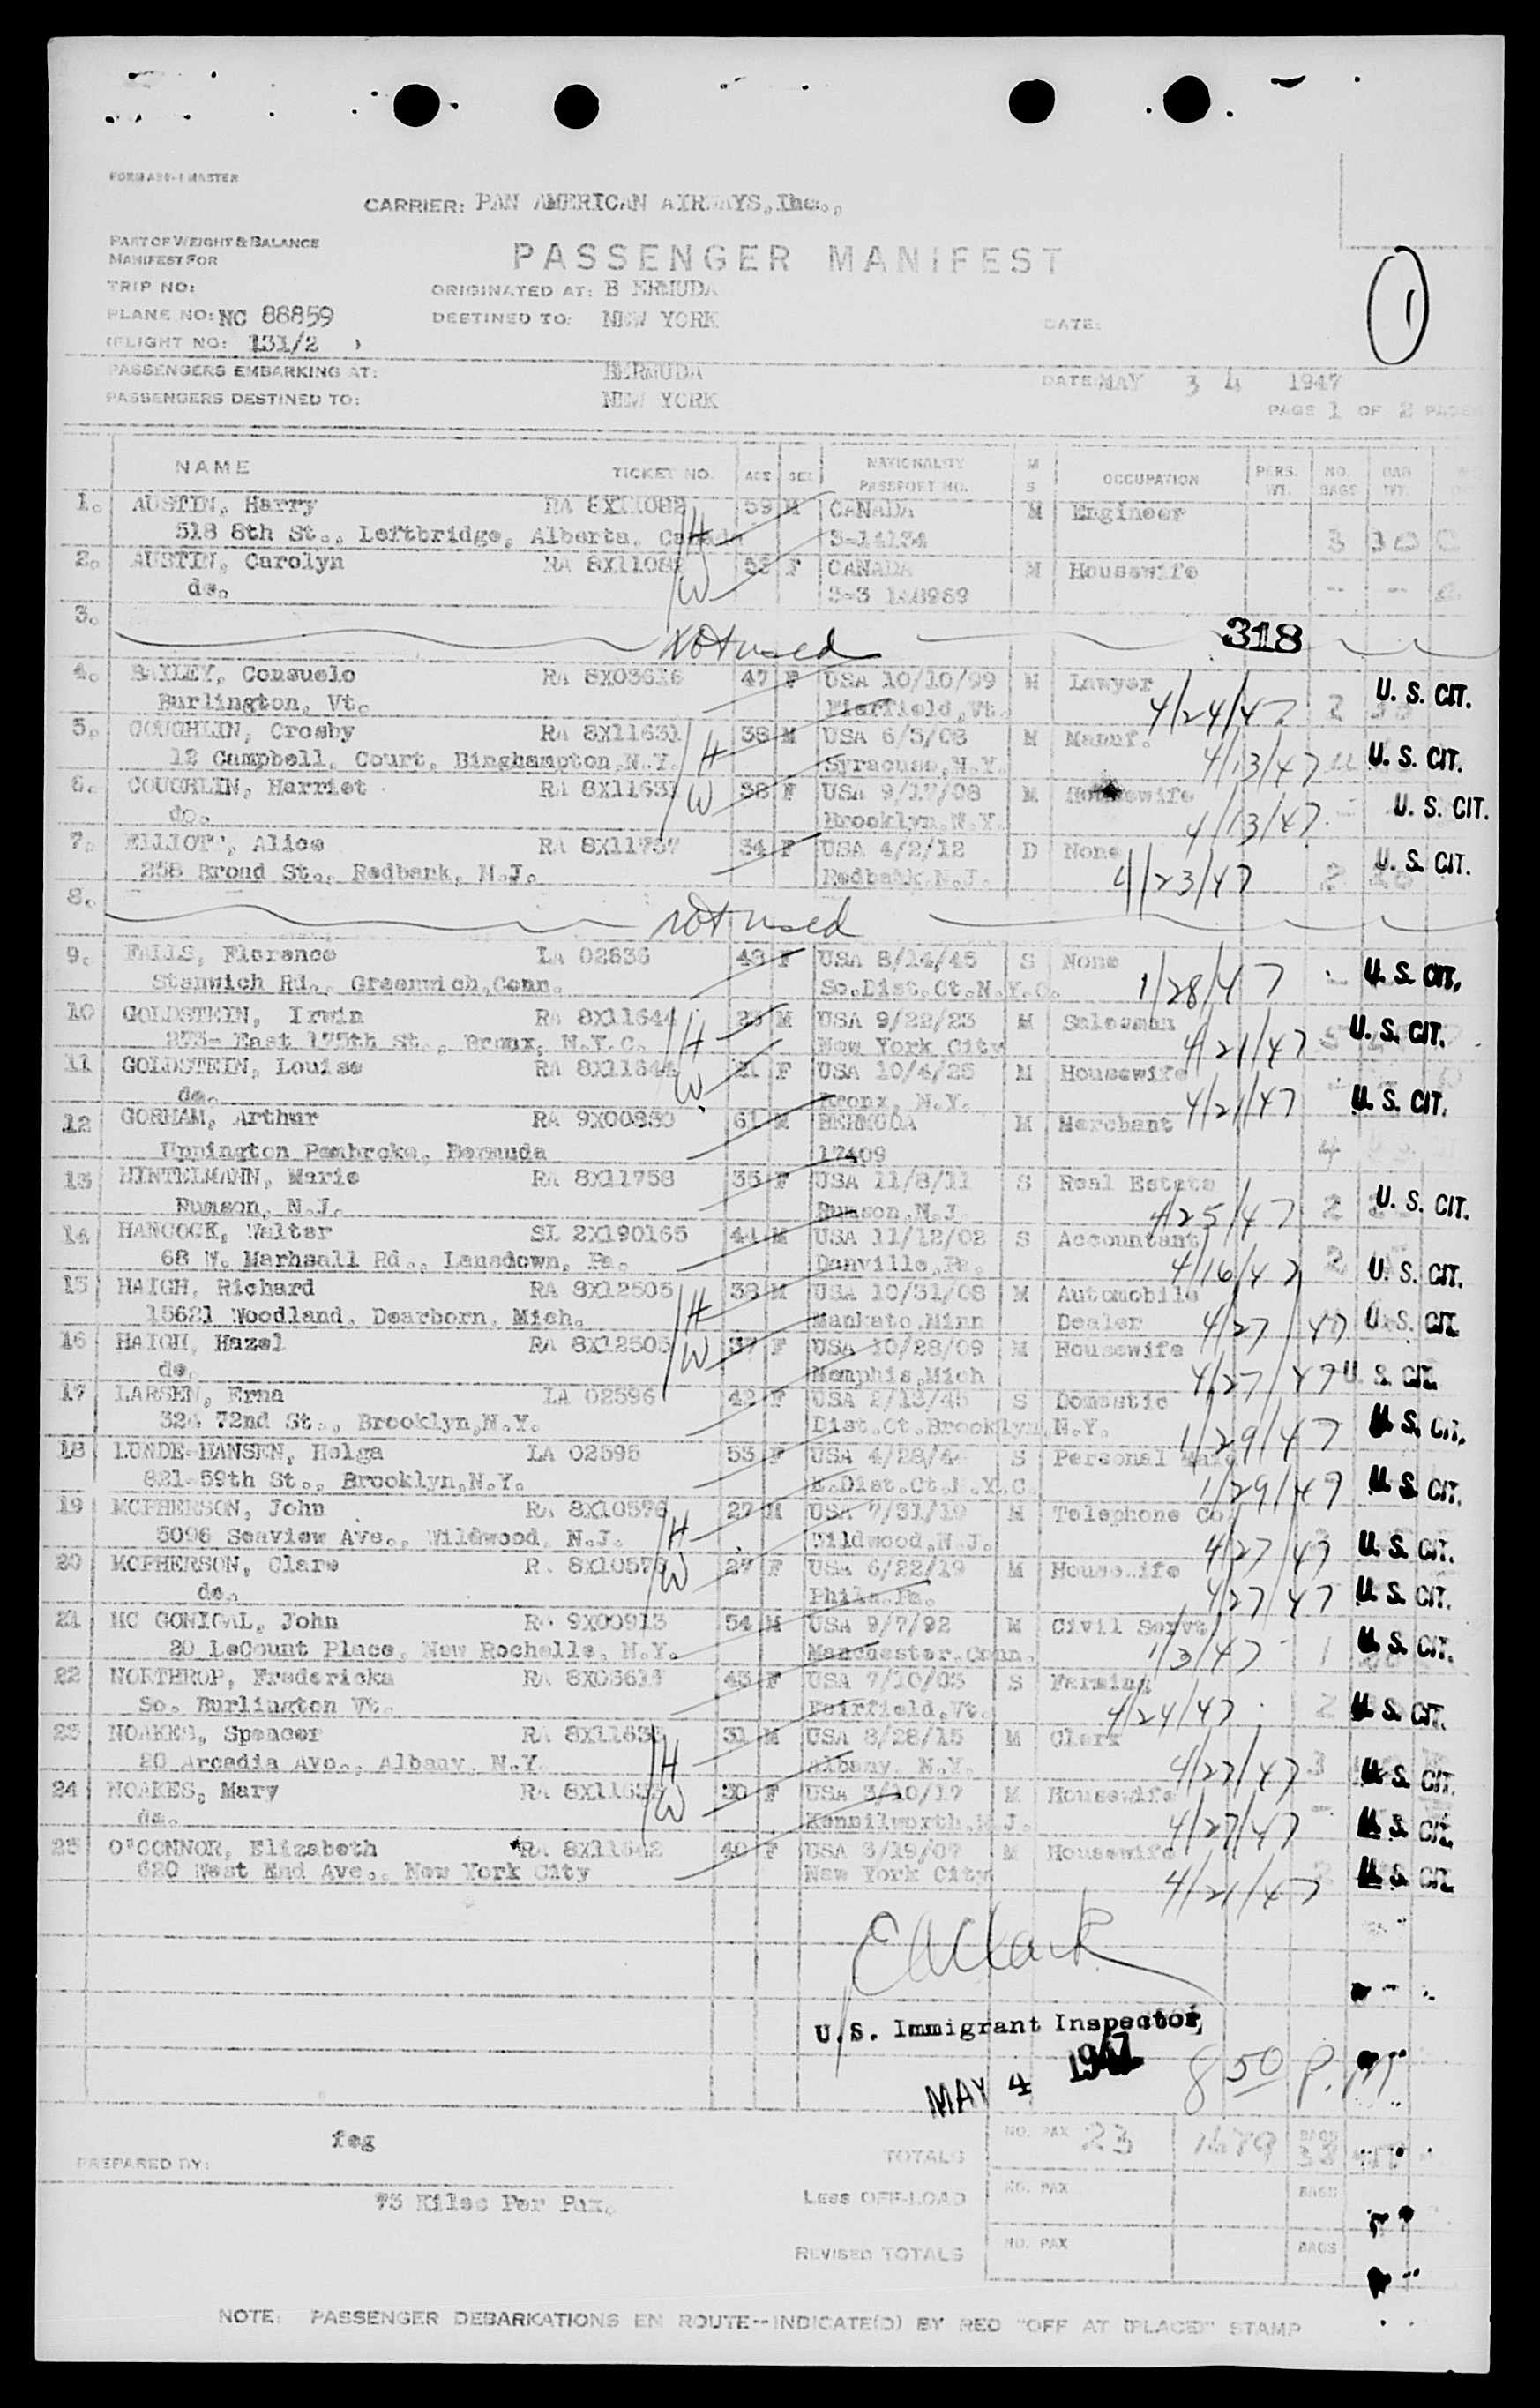 FORM ABF-1 MASTER
CARRIER: PAN AMERICAN AIRWAYS, Inc.,
PART OF WEIGHT & BALANCE
MANIFEST FOR
PASSENGER MANIFEST
TRIP NO:
ORIGINATED AT: B ERMUDA
PLANE NO: NC 88859
DESTINED TO: NEW YORK
DATE:
1
(FLIGHT NO: 131/2 )
PASSENGERS EMBARKING AT: BERMUDA
DATE: MAY 3 4 1947
PASSENGERS DESTINED TO: NEW YORK
PAGE 1 OF 2 PAGES
NAME TICKET NO. AGE SEX NATIONALITY PASSPORT NO. M S OCCUPATION PERS. WT. NO. BAGS BAG WT.
1. AUSTIN, Harry RA 8X11082 59 M CANADA M Engineer
518 8th St., Leftbridge, Alberta, Canada H 3-14134 3 30
2. AUSTIN, Carolyn RA 8X1108 F CANADA M Housewife
do. W 3-3
3. not used 318
4. BAILEY, Consuelo RA 8X03616 47 F USA 10/10/99 M Lawyer
Burlington, Vt. Fierfield, Vt. 4/24/47 2 U. S. CIT.
5. COUGHLIN, Crosby RA 8X11631 38 M USA 6/3/08 M Manuf.
12 Campbell, Court, Binghampton, N.Y. H Syracuse, N.Y. 4/13/47 U. S. CIT.
6. COUGHLIN, Harriet RA 8X11631 38 F USA 9/17/08 M Housewife
do. W Brooklyn, N.Y. 4/13/47 U. S. CIT.
7. ELLIOTT, Alice RA 8X11757 34 F USA 4/2/12 D None
258 Broad St., Redbank, N.J. Redbank, N.J. 4/23/47 2 U. S. CIT.
8. not used
9. FALLS, Florence LA 02636 43 F USA 8/14/45 S None
Stanwich Rd., Greenwich, Conn. So.Dist.Ct.N.Y.C. 1/28/47 U. S. CIT.
10 GOLDSTEIN, Irwin RA 8X11644 23 M USA 9/22/23 M Salesman
East 175th St., Bronx, N.Y.C. H New York City 4/21/47 U. S. CIT.
11 GOLDSTEIN, Louise RA 8X11644 21 F USA 10/4/25 M Housewife
do. W Bronx, N.Y. 4/21/47 U. S. CIT.
12 GORHAM, Arthur RA 9X00850 61 M BERMUDA M Merchant
Uppington Pembroke, Bermuda 17409 4
13 HINTELMANN, Marie RA 8X11758 35 F USA 11/8/11 S Real Estate
Rumson, N.J. Rumson, N.J. 4/25/47 2 U. S. CIT.
14 HANCOCK, Walter SL 2X190165 44 M USA 11/12/02 S Accountant
68 W. Marhsall Rd., Lansdown, Pa. Danville, Pa. 4/16/47 2 U. S. CIT.
15 HAIGH, Richard RA 8X12505 38 M USA 10/31/08 M Automobile
15621 Woodland, Dearborn, Mich. H Mankato, Minn Dealer 4/27/47 U. S. CIT.
16 HAIGH, Hazel RA 8X12505 37 F USA 10/28/09 M Housewife
do. W Memphis, Mich 4/27/47 U. S. CIT.
17 LARSEN, Erna LA 02596 42 F USA 2/13/45 S Domestic
324 72nd St., Brooklyn, N.Y. Dist.Ct.Brooklyn, N.Y. 1/29/47 U. S. CIT.
18 LUNDE-HANSEN, Helga LA 02595 53 F USA 4/28/4 S Personal Maid
821-59th St., Brooklyn, N.Y. E.Dist.Ct.N.Y.C. 1/29/47 U. S. CIT.
19 MCPHERSON, John RA 8X10576 27 M USA 7/31/19 M Telephone Co.
5096 Seaview Ave., Wildwood, N.J. H Wildwood, N.J. 4/27/47 U. S. CIT.
20 MCPHERSON, Clare RA 8X10576 27 F USA 6/22/19 M Housewife
do. W Phila. Pa. 4/27/47 U. S. CIT.
21 MC GONIGAL, John RA 9X00913 54 M USA 9/7/92 M Civil Servt
20 LeCount Place, New Rochelle, N.Y. Manchester, Conn. 1/3/47 1 U. S. CIT.
22 NORTHROP, Fredericka RA 8X03614 43 F USA 7/10/03 S Farming
So. Burlington Vt. Fairfield, Vt. 4/24/47 2 U. S. CIT.
23 NOAKES, Spencer RA 8X11633 31 M USA 8/28/15 M Clerk
20 Arcadia Ave., Albany, N.Y. H Albany, N.Y. 4/27/47 3 U. S. CIT.
24 NOAKES, Mary RA 8X11633 30 F USA 3/10/17 M Housewife
do. W Kennilworth, N.J. 4/27/47 U. S. CIT.
25 O'CONNOR, Elizabeth RA 8X11642 40 F USA 3/19/07 M Housewife
620 West End Ave., New York City New York City 4/21/47 U. S. CIT.
E A Clark
U.S. Immigrant Inspector
MAY 4 1947 8 50 P.M
feg
PREPARED BY:
TOTALS NO. PAX 23 1679 BAGS 38
75 Kilos Per Pax.
Less OFF-LOAD NO. PAX BAGS
REVISED TOTALS NO. PAX BAGS
NOTE: PASSENGER DEBARKATIONS EN ROUTE--INDICATE(D) BY RED "OFF AT (PLACE)" STAMP